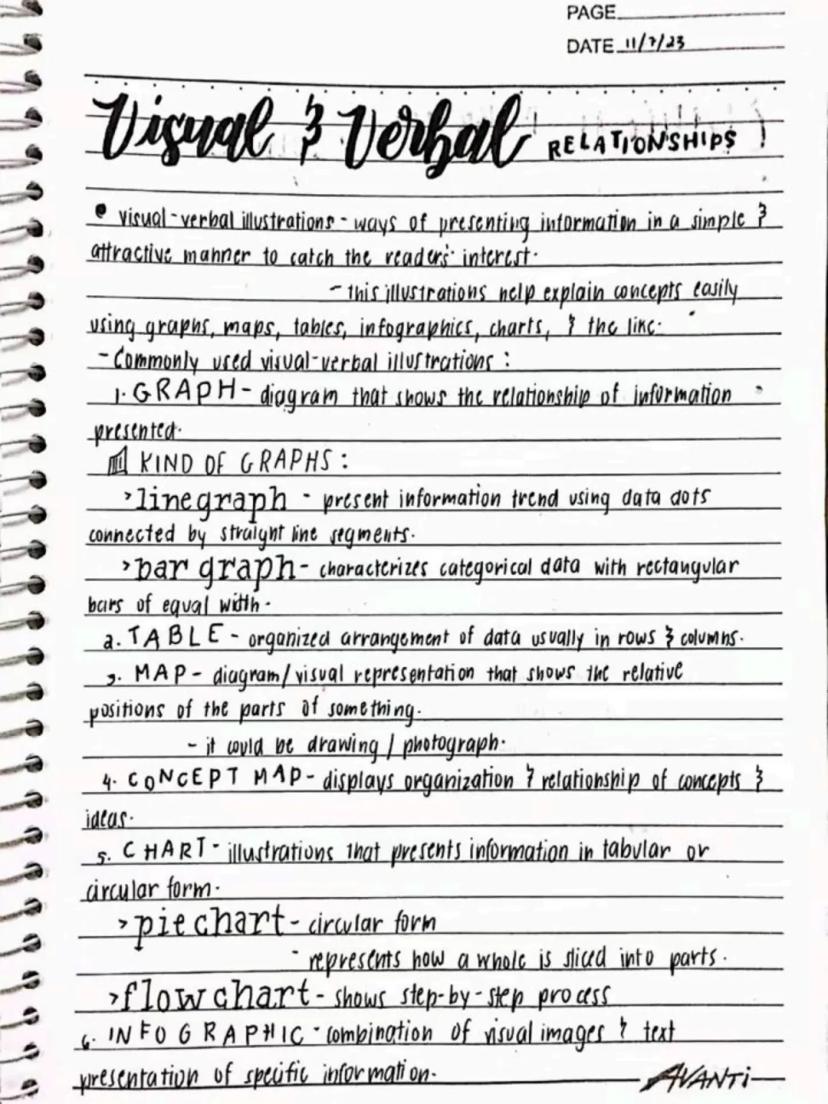 PAGE
DATE 11/7/23
Visual & Verbal RELATIONSHIPS
• visual-verbal illustrations - ways of presenting information in a simple &
attractive manner to catch the readers' interest.
- this illustrations help explain concepts easily
using graphs, maps, tables, infographics, charts, & the like.
- Commonly used visual-verbal illustrations :
1. GRAPH - diagram that shows the relationship of information
presented.
KIND OF GRAPHS :
> line graph - present information trend using data dots
connected by straight line segments.
> bar graph - characterizes categorical data with rectangular
bars of equal width.
2. TABLE - organized arrangement of data usually in rows & columns.
3. MAP - diagram/visual representation that shows the relative
positions of the parts of something.
- it could be drawing / photograph.
4. CONCEPT MAP - displays organization & relationship of concepts &
ideas.
5. CHART - illustrations that presents information in tabular or
circular form.
> pie chart - circular form
- represents how a whole is sliced into parts.
> flow chart - shows step-by-step process
6. INFOGRAPHIC - combination of visual images & text
presentation of specific information.
AVANTi